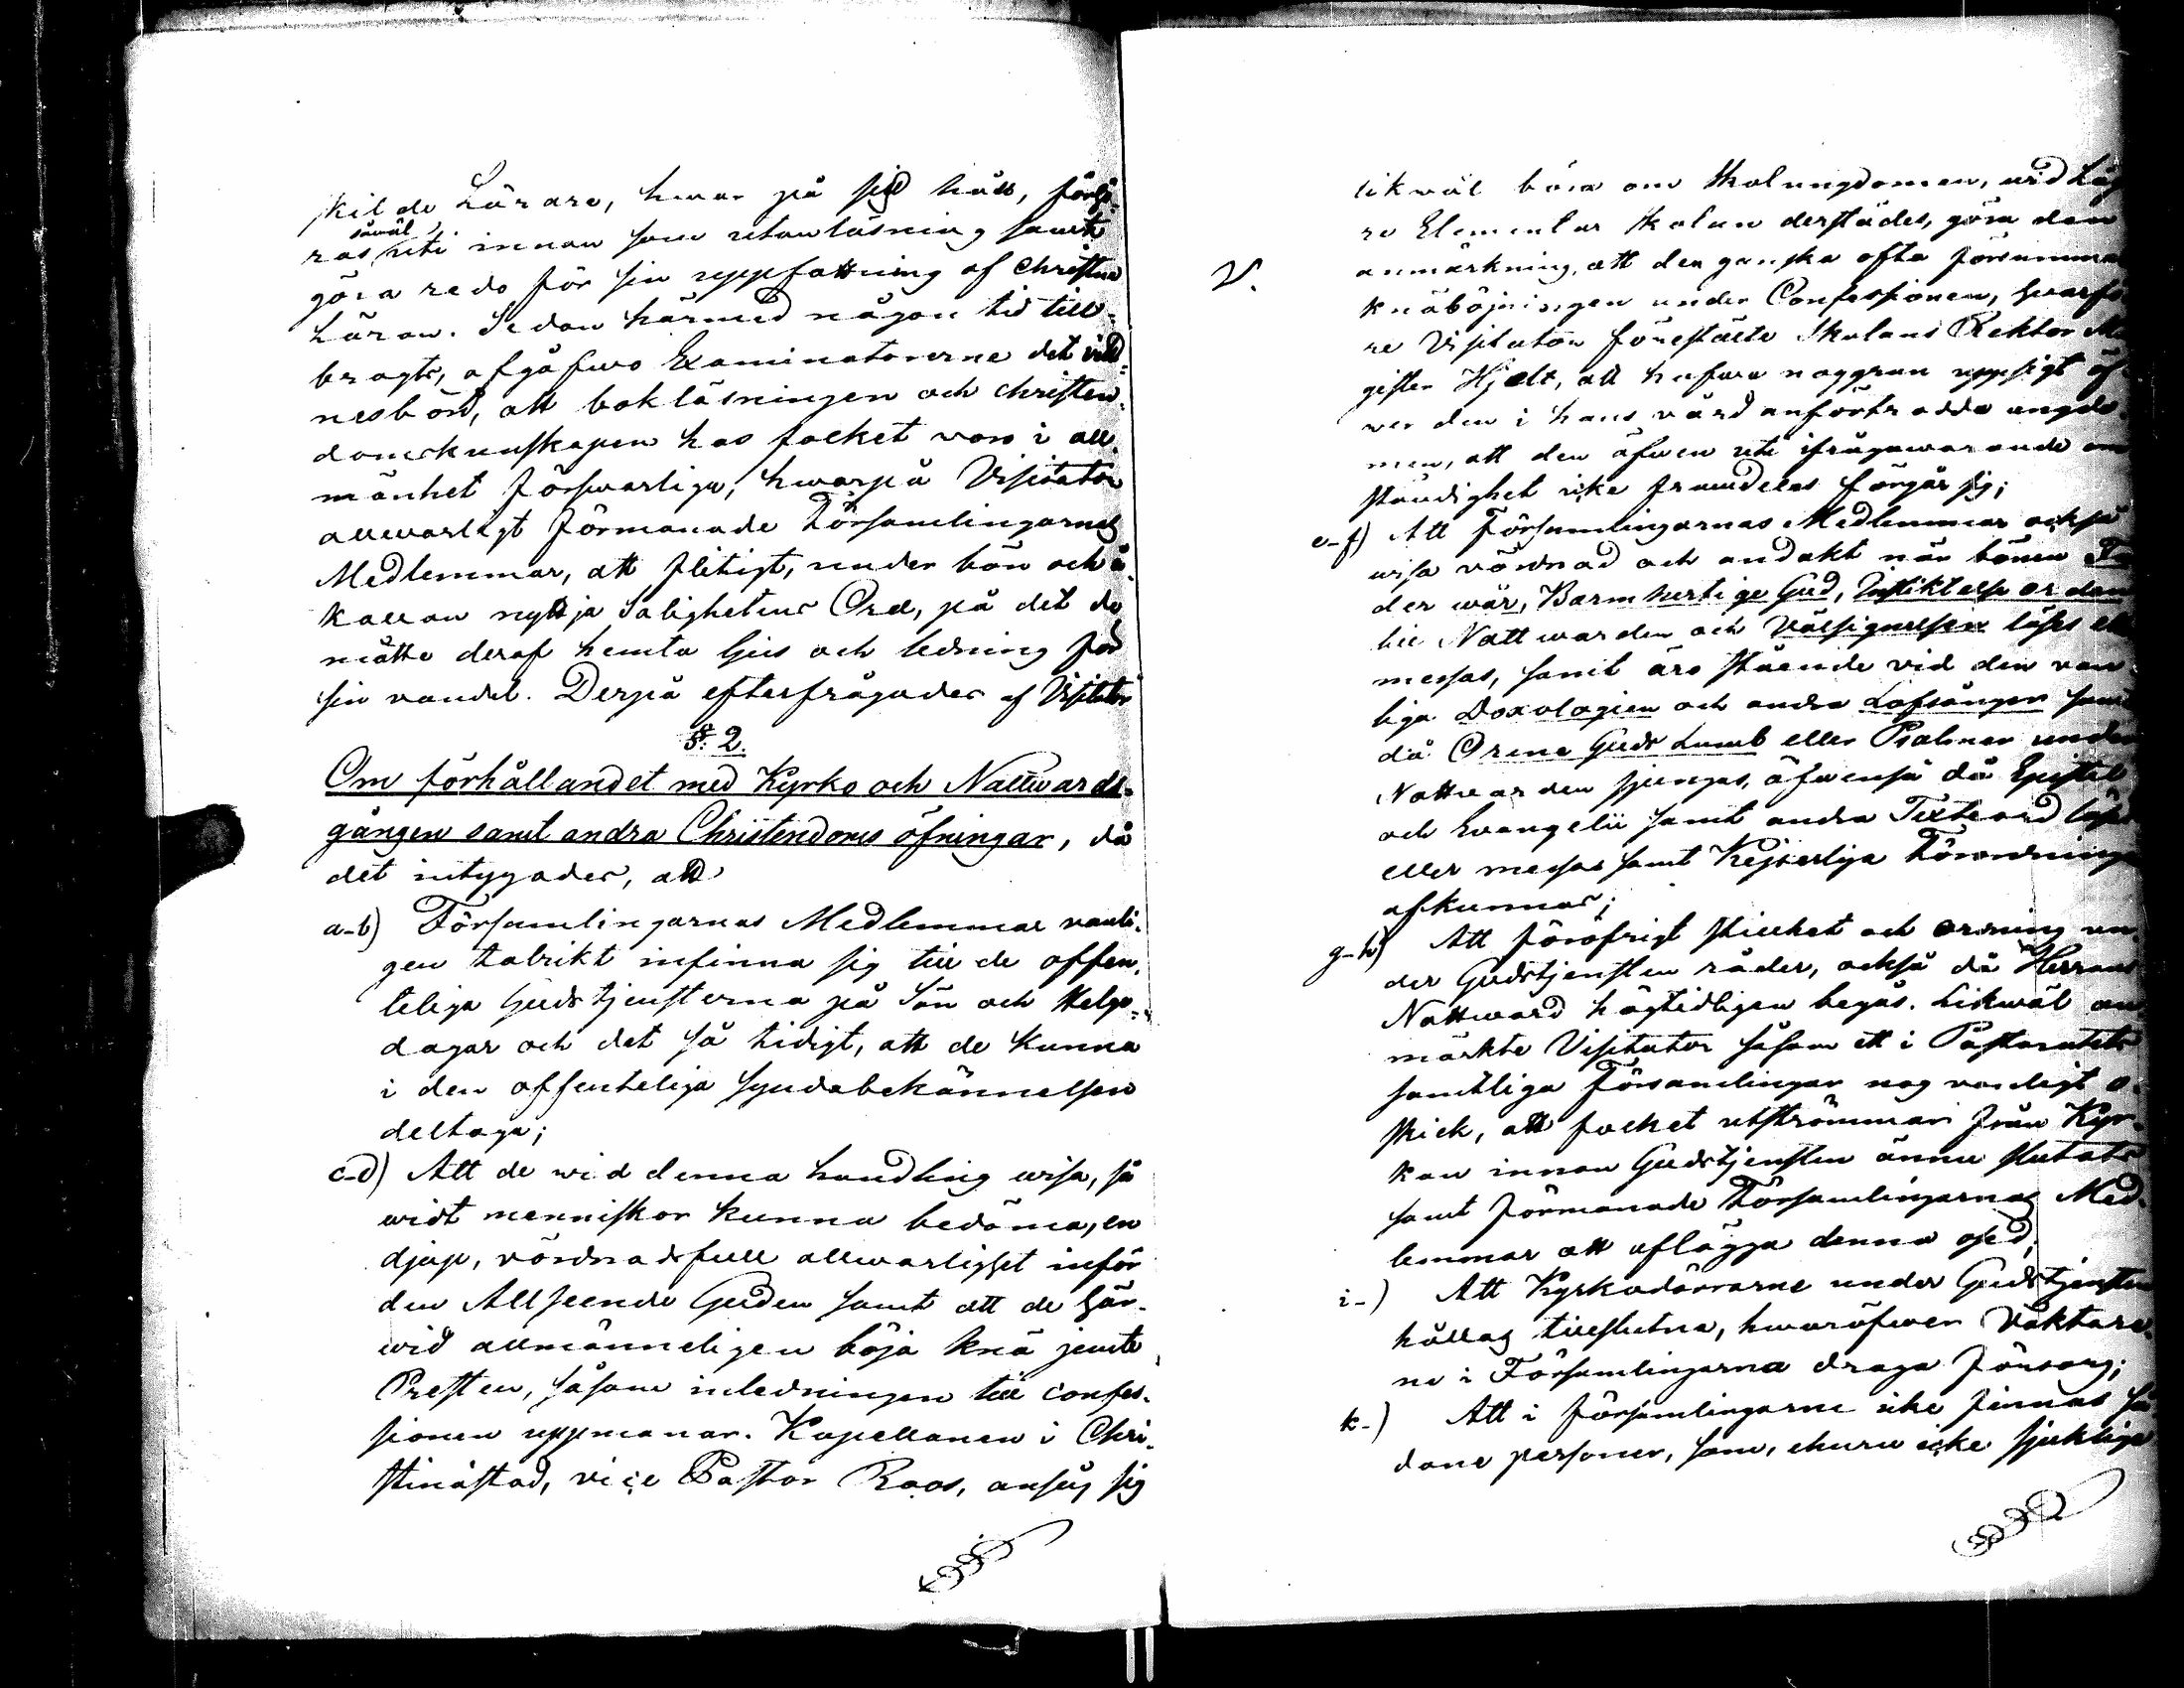 skilde Lärare, hwar på sitt håll, förhö-
ras såwäl uti innan som utanläsning samt
göra redo för sin uppfattning af Christna
Läran. Sedan härmed någon tid till-
bragts, afgåfwo Examinatorerne det vitt-
nesbörd, att bokläsningen och christen-
domskunskapen hos folket voro i all-
mänhet förswarliga, hwarpå Visitator
allwarligt förmanade Församlingarnas
Medlemmar, att flitigt, under bön och å-
kallan nyttja Salighetens Ord, på det de
måtte deraf hemta ljus och ledning för
sin vandel. Derpå efterfrågades af Visitator
§. 2.
Om förhållandet med Kyrko och Nattwards-
gången samt andra Christendoms öfningar, då
det intygades, att
a-b) Församlingarnas Medlemmar vanli-
gen talrikt infinna sig till de offen-
teliga Gudstjensterna på Sön och Helge-
dagar och det så tidigt, att de kunna
i den offenteliga syndabekännelsen
deltaga;
c-d) Att de wid denna handling wisa, så
widt menniskor kunna bedöma, en
djup, vördnadsfull allwarlighet inför
den Allseende Guden samt att de här-
wid allmänneligen böja knä jemte
Presten, såsom inledningen till confes-
sionen uppmanar. Kapellanen i Chri-
stinæstad, vice Pastor Roos, ansåg sig
likwäl böra om Skolungdomen, wid Läg
re Elementar Skolan derstädes, göra den
anmärkning, att den ganska ofta försummar
V.
knäböjningen under Confessionen, hwarfö
re Visitator förestälte Skolans Rektor Ma
gister Hjelt, att hafwa noggran uppsigt öf-
wer den i hans vård anförtrodda ungdo-
men, att den äfwen uti ifrågawarande om
ständighet icke framdeles förgår sig;
e-f) Att Församlingarnas Medlemmar också
wisa vördnad och andakt när bönen Fa
der wår, Barmhertige Gud, Instiktelse orden
till Nattwarden och Välsignelsen läses el
messas, samt äro stående vid den van-
liga Doxologien och andra Lofsånger samt
då Orene Guds Lamb eller Psalmer under
Nattwarden sjunges, äfwenså då Epistel
och Evangelii samt andra Texte ord läses
eller messas samt Kejserliga Förordningar
afkunnas;
g-h) Att för öfrigt stillhet och ordning un-
der Gudstjensten råder, också då Herrans
Nattward högtidligen begås. Likwäl an
märkte Visitator såsom ett i Pastoratets
samtliga Församlingar nog vanligt o-
skick, att folket utströmmar från Kyr-
kan innan Gudstjensten ännu slutats
samt förmanade Församlingarnas Med-
lemmar att aflägga denna osed;
i-) Att Kyrkodörrarne under Gudstjensten
hållas tillslutna, hwaröfwer Väktare-
ne i Församlingarna draga försorg;
k-) Att i församlingarne icke finnas så
dane personer, som, ehuru icke sjuklige